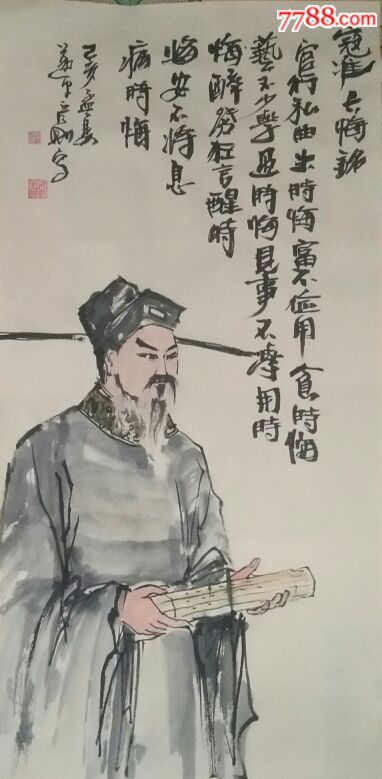 7788.com
寇准六悔銘
官行私曲失時悔富不儉用貧時悔
藝不少學過時悔見事不學用時
悔醉發狂言醒時
悔安不將息
病時悔
己亥孟夏